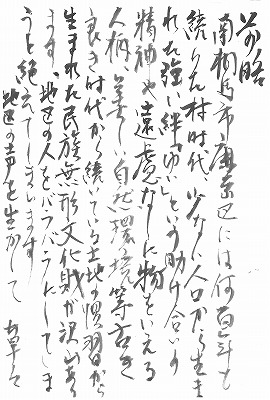 前略
南相馬市鹿島区には何百年も
続いた村時代、少ない人口から生ま
れた強い絆「ゆい」という助け合いの
精神や遠慮なしに物をいえる
人柄、美しい自然環境等古き
良き時代から続いている土地の慣習から
生まれた民族無形文化財が沢山あり
ます、地区の人をバラバラにしてしま
うと絶えてしまいます
地区の声を生かして